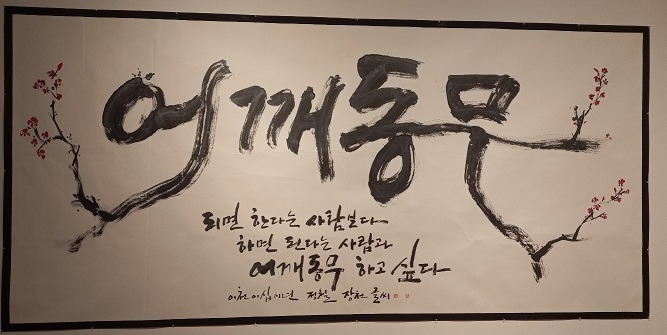 어깨동무
되면 한다는 사람보다
하면 된다는 사람과
어깨동무 하고 싶다
이천이십이년 정월 장천 글씨